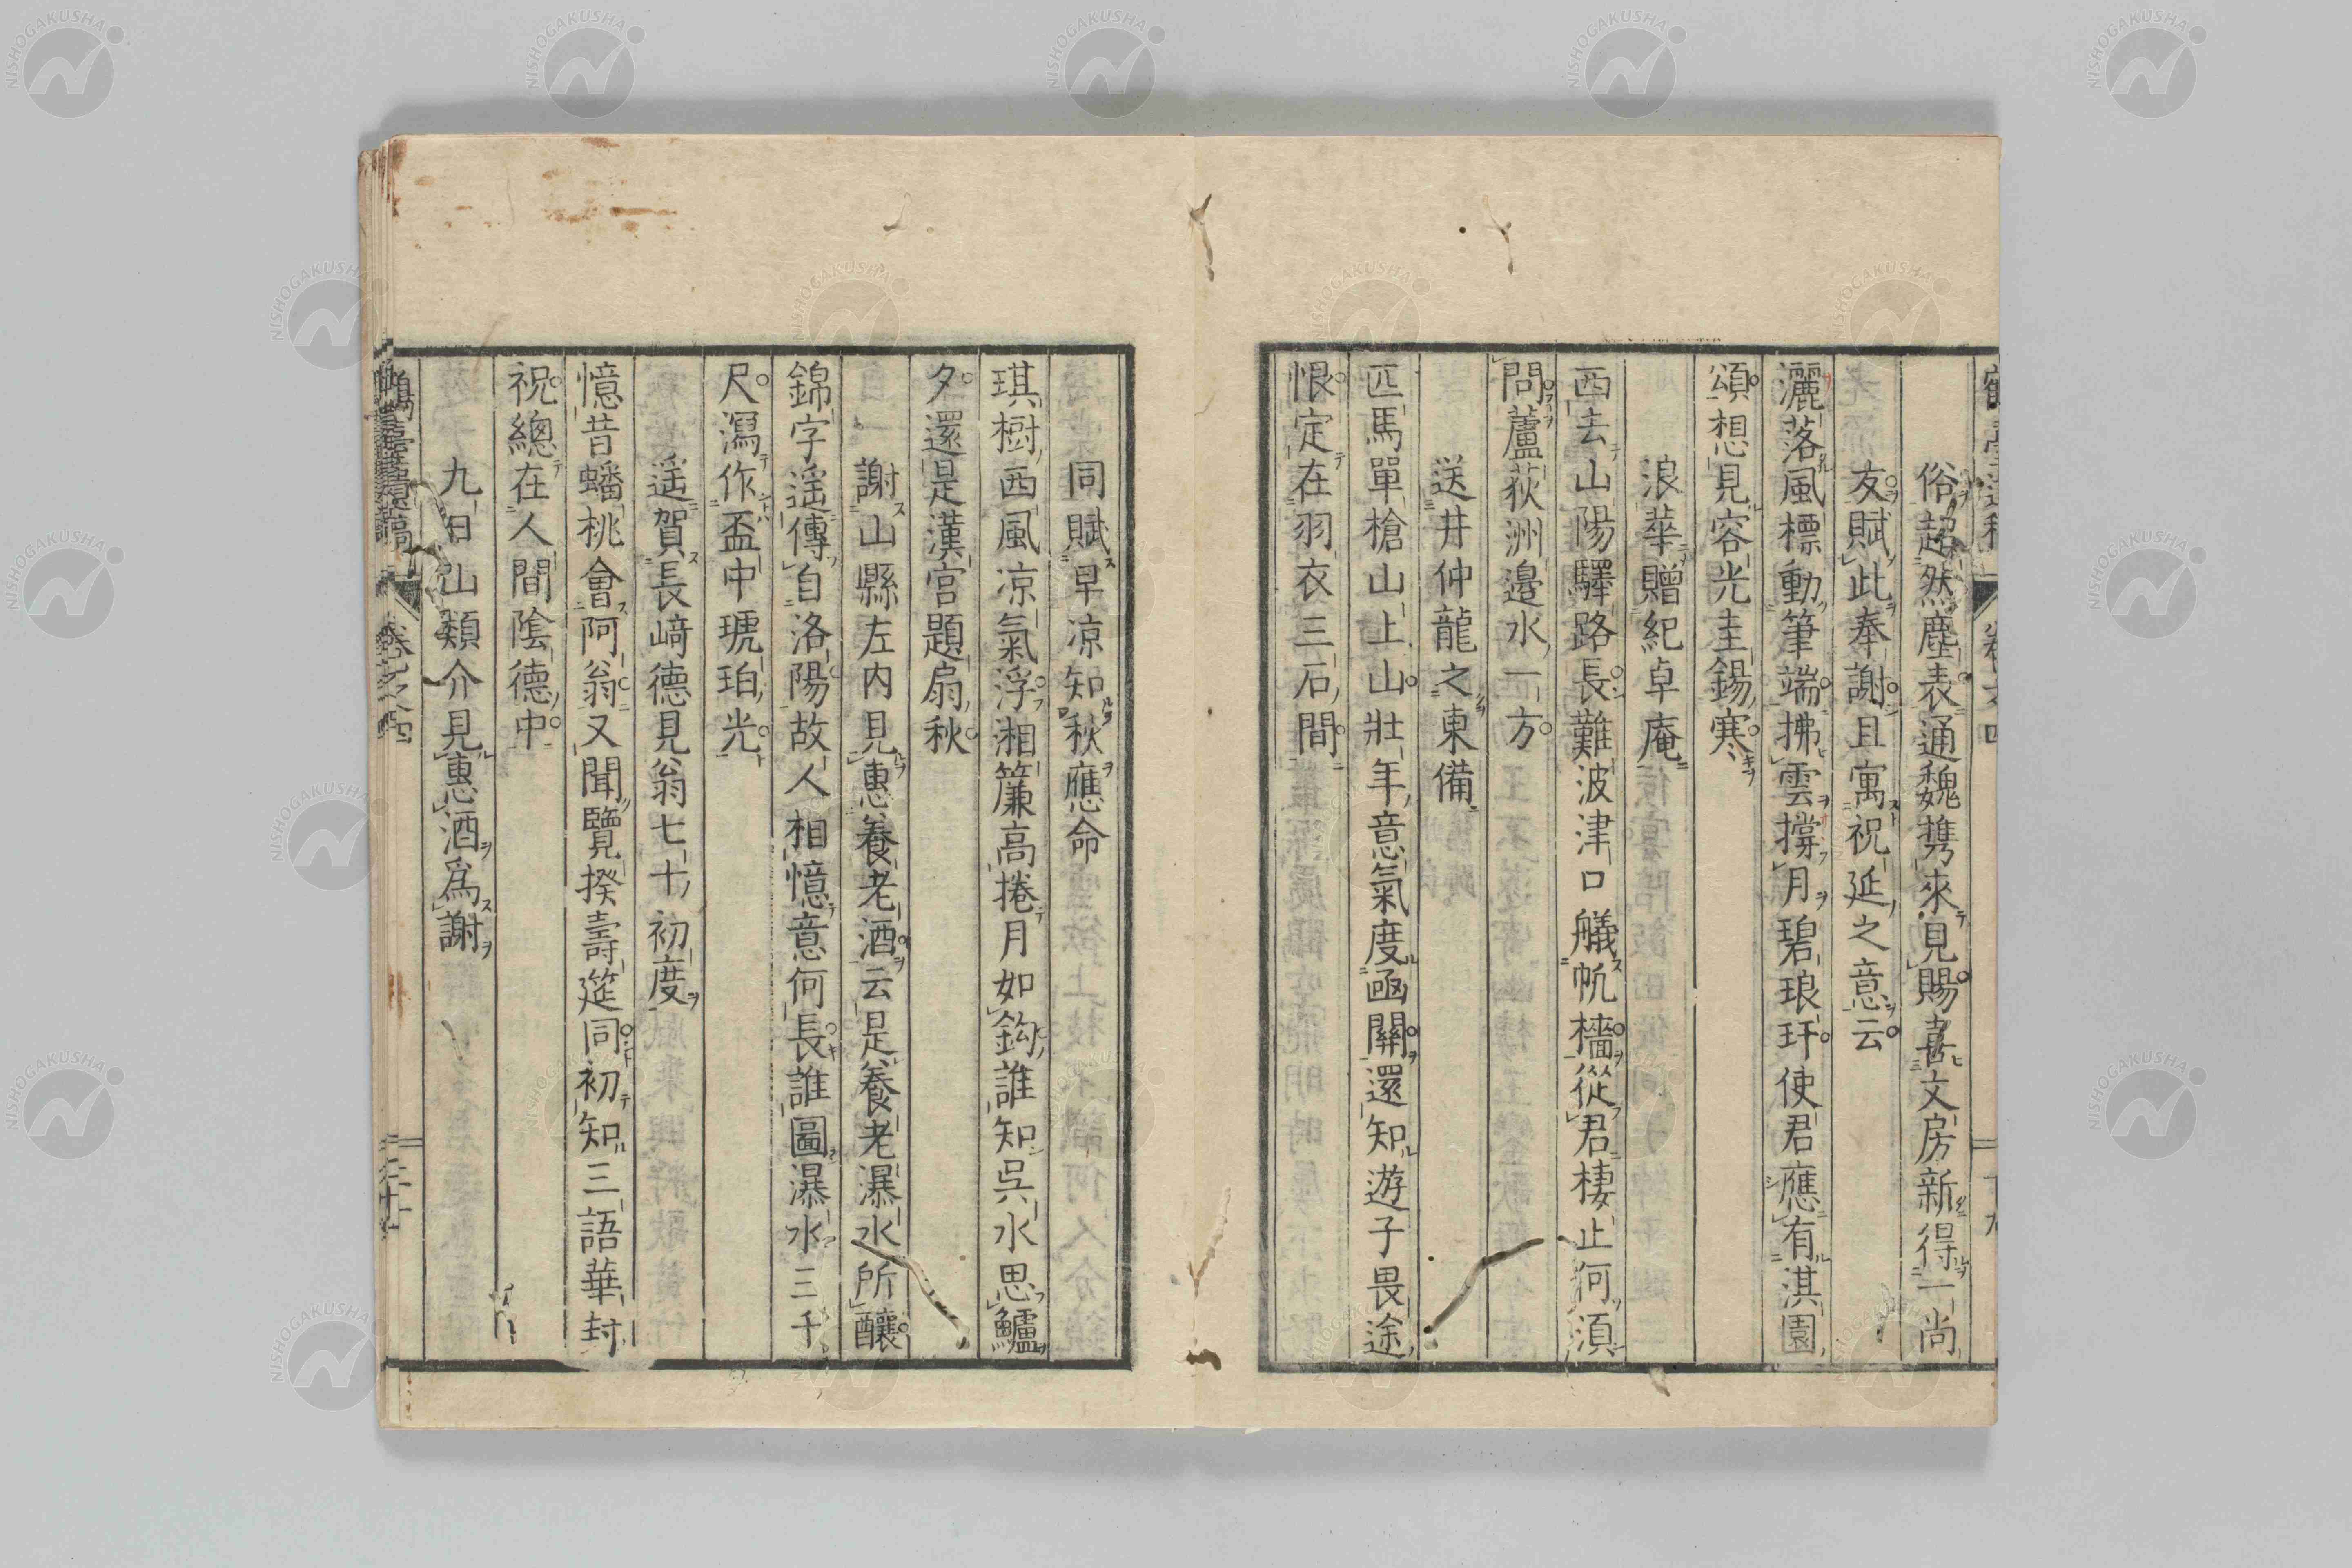 俗超然塵表通魏携來見賜喜文房新得一尚
友賦此奉謝且寓祝延之意云
灑落風標動筆端拂雲撐月碧琅玕使君應有淇園
頌想見容光圭錫寒
浪華贈紀卓庵
西去山陽驛路長難波津口艤帆檣從君棲止何須
問蘆荻洲邉水一方
送井仲龍之東備
匹馬單槍山上山壯年意氣度凾關還知遊子畏途
恨定在羽衣三石間
同賦早凉知秋應命
琪樹西風凉氣浮湘簾高捲月如鈎誰知呉水思鱸
夕還是漢宮題扇秋
謝山縣左内見惠養老酒云是養老瀑水所釀
錦字遥傳自洛陽故人相憶意何長誰圖瀑水三千
尺瀉作盃中琥珀光
遥賀長﨑德見翁七十初度
憶昔蟠桃會阿翁又聞覽揆壽筵同初知三語華封
祝總在人間陰德中
九日山類介見惠酒爲謝
卷之四
NISHOGAKUSHA